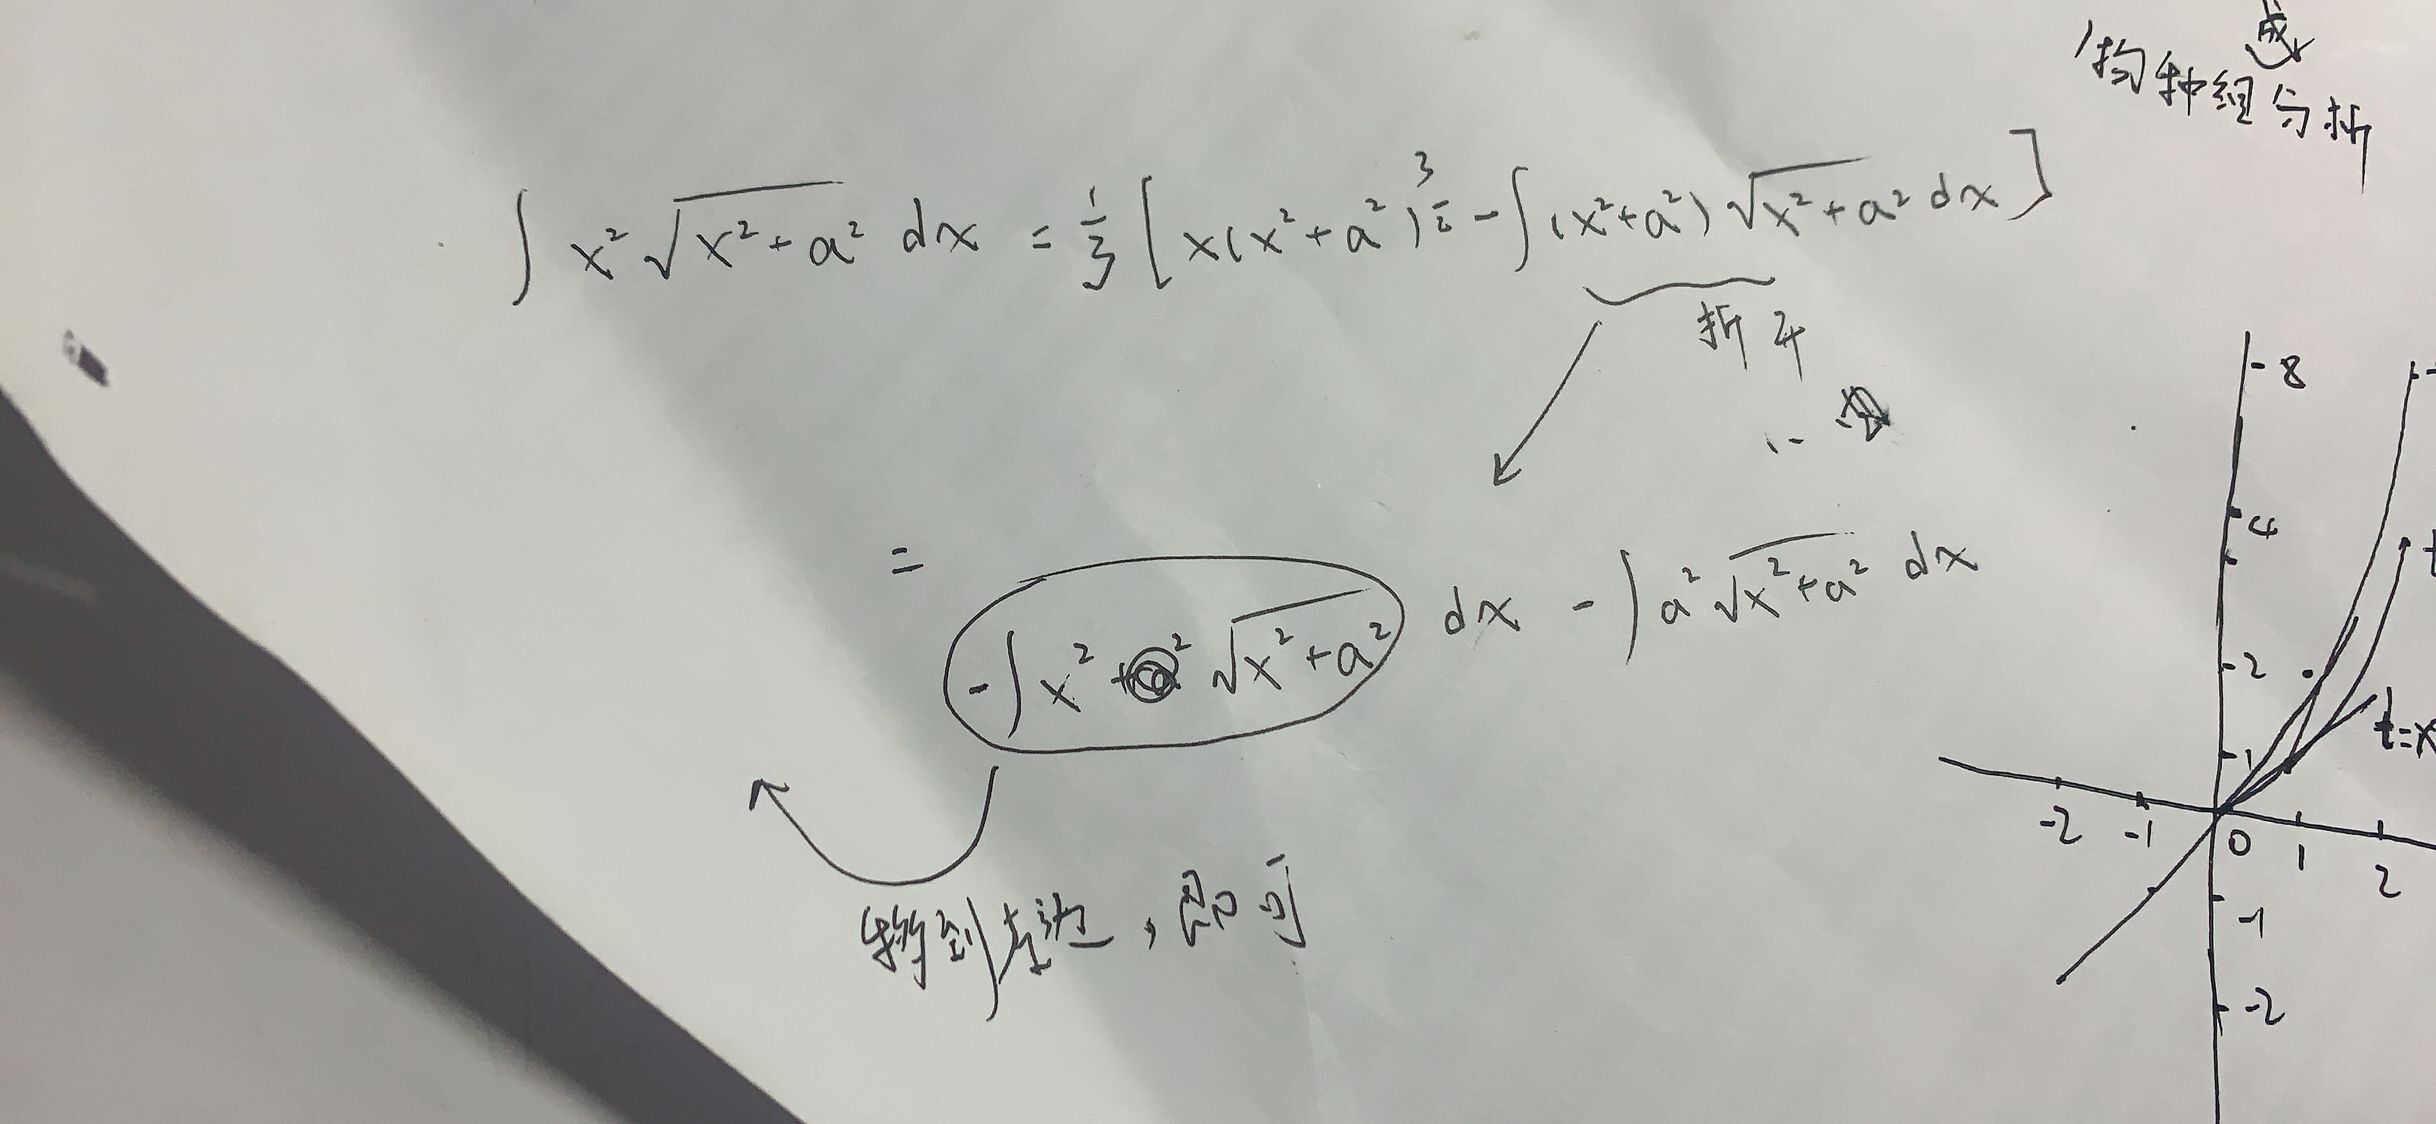 成
物种组分析
∫ x² √(x²+a²) dx = 1/3 [ x(x²+a²)^(3/2) - ∫ (x²+a²) √(x²+a²) dx ]
折开
= - ∫ x² √(x²+a²) dx - ∫ a² √(x²+a²) dx
移到左边，即可
8
4
2
1
t=x
-2 -1 0 1 2
-1
-2